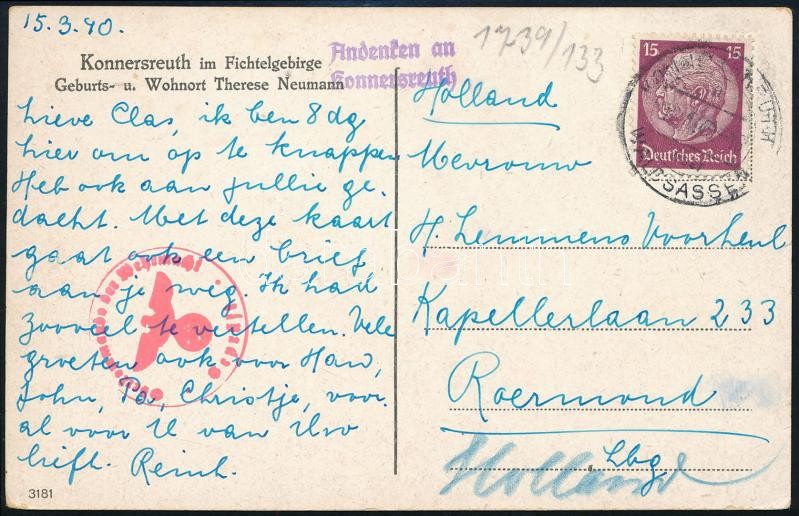 15.3.40.
Konnersreuth im Fichtelgebirge
Geburts- u. Wohnort Therese Neumann
Andenken an
Konnersreuth
1739/133
15 15
Deutsches Reich
WALDSASSEN
lieve Clas, ik ben 8 dg
hier om op te knappen
Heb ook aan jullie ge-
dacht. Met deze kaart
gaat ook een brief
aan je weg. Ik had
zooveel te vertellen. Vele
groeten ook voor Han,
John, Pa, Christje, voor
al voor U van Uw
lieft. Reinh.
3181
Holland
Mevrouw
H. Lemmens Voorheul
Kapellerlaan 233
Roermond
Lbg
Holland